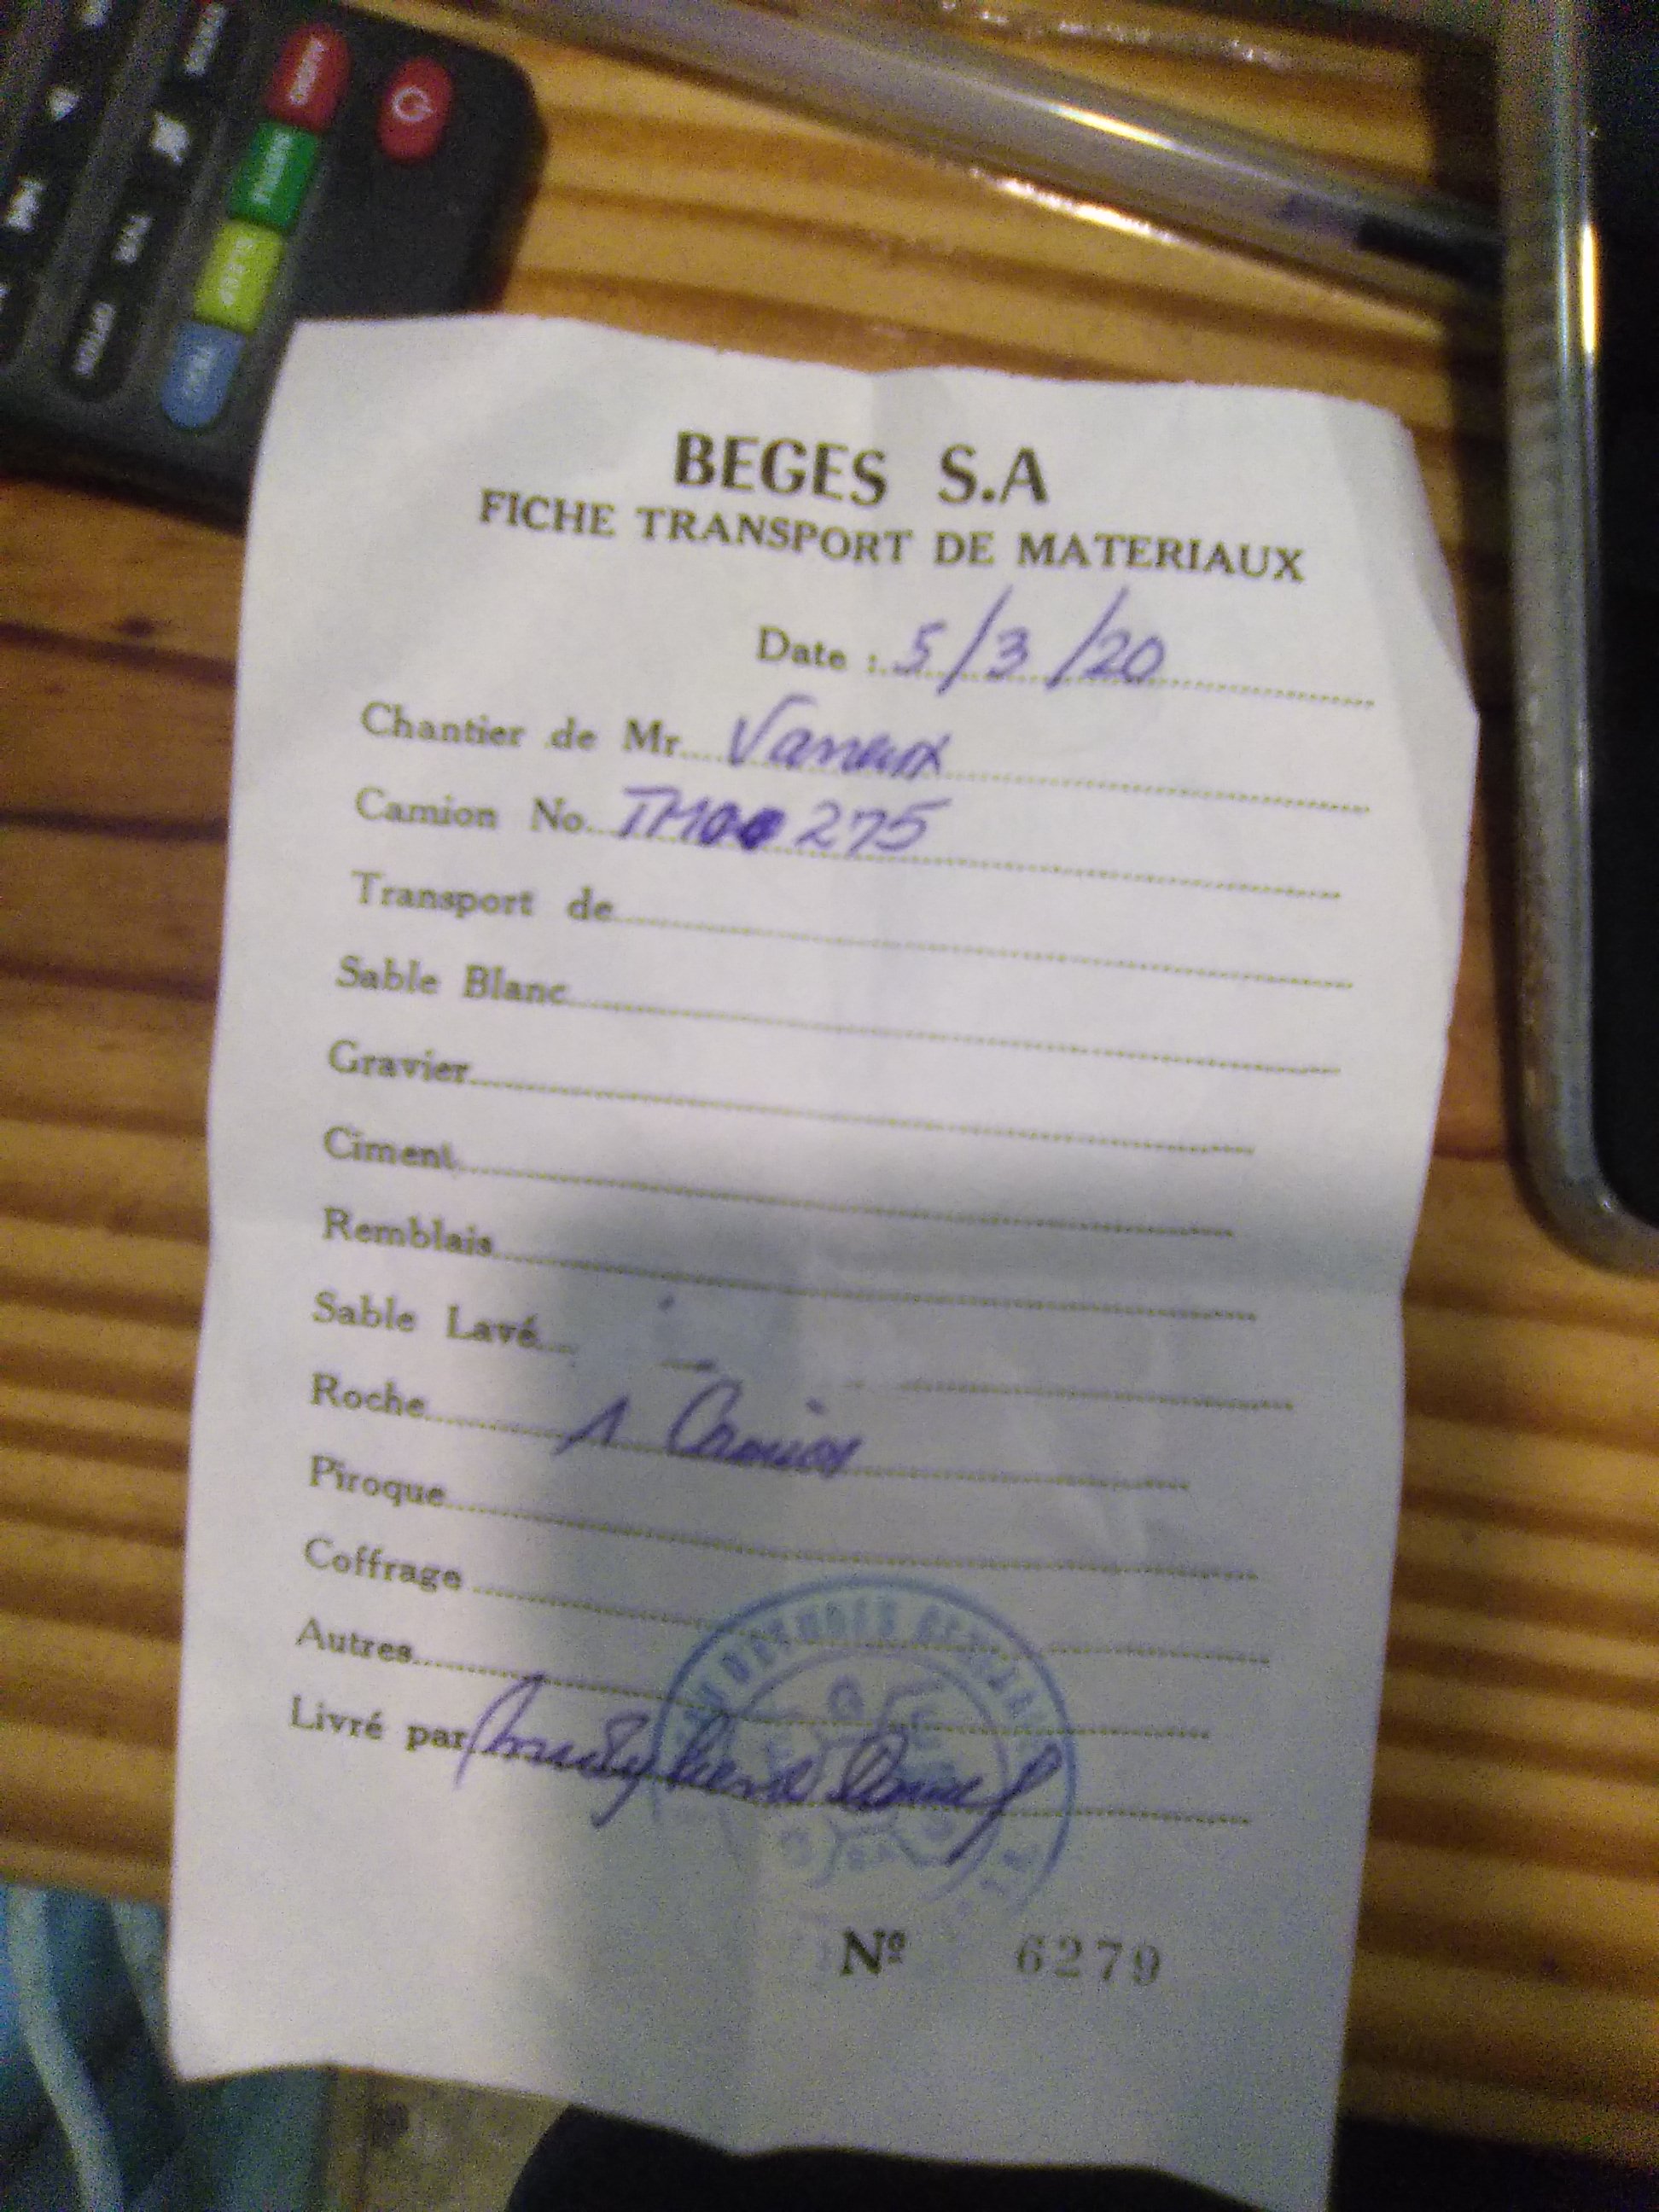 BEGES S.A
FICHE TRANSPORT DE MATERIAUX
Date : 5/3/20
Chantier de Mr Vaneux
Camion No. 275
Transport de
Sable Blanc
Gravier
Ciment
Remblais
Sable Lavé
Roche 1 Camion
Piroque
Coffrage
Autres
Livré par
Nº 6279